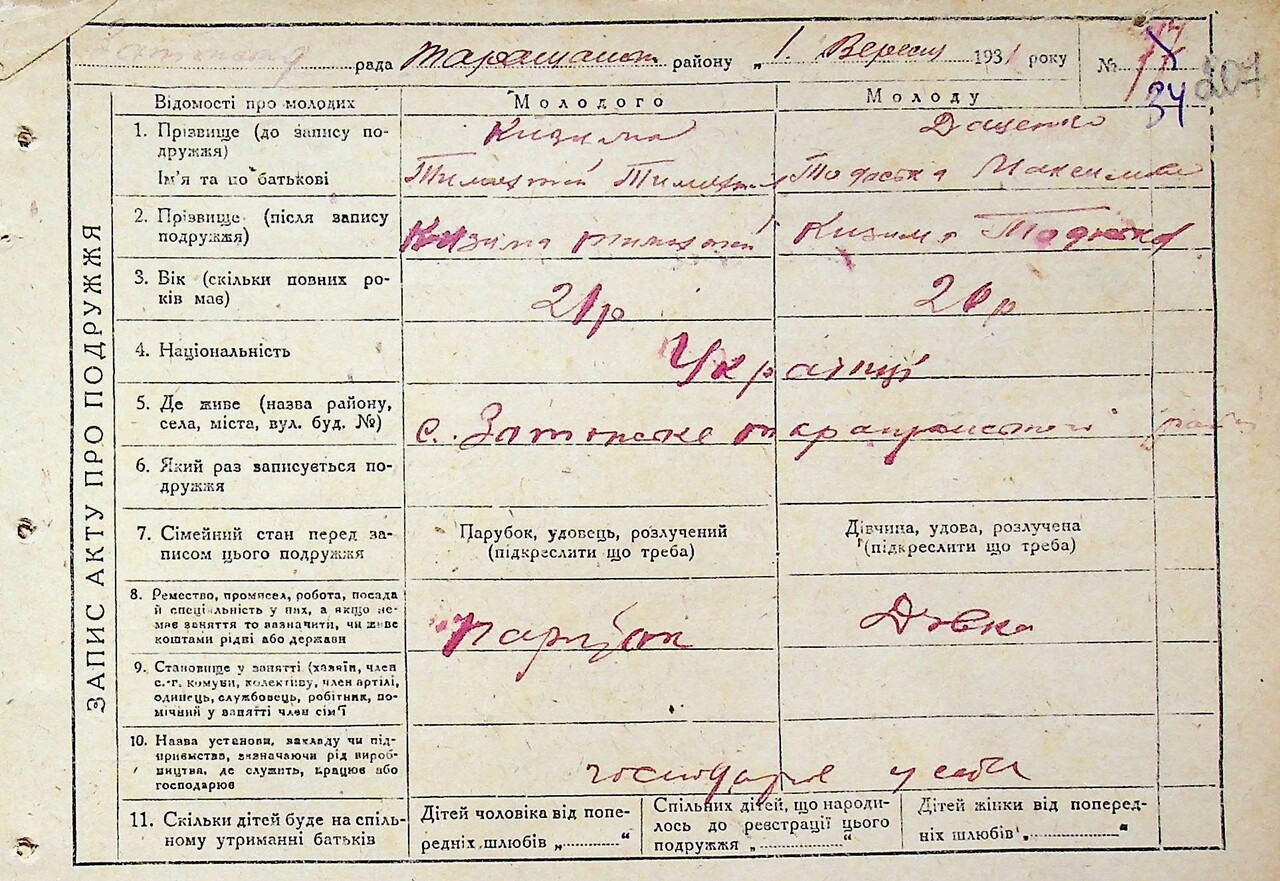 рада району „1. Вересня 1931 року №
34 207
ЗАПИС АКТУ ПРО ПОДРУЖЖЯ
Відомості про молодих Молодого Молоду
1. Прізвище (до запису по-
дружжя) Кизима Даценко
Ім'я та по батькові Тимофтій Максимівна
2. Прізвище (після запису
подружжя) Кизима Тимофтій Кизима
3. Вік (скільки повних ро-
ків має) 21р 20р
4. Національність Українці
5. Де живе (назва району,
села, міста, вул. буд. №) с.
6. Який раз записується по-
дружжя
7. Сімейний стан перед за-
писом цього подружжя
Парубок, удовець, розлучений
(підкреслити що треба)
Дівчина, удова, розлучена
(підкреслити що треба)
8. Ремество, промисел, робота, посада
й спеціяльність у них, а якщо не-
має заняття то вазначити, чи живе
коштами рідні або держави
Парубок Дівка
9. Становище у занятті (хазяїн, член
с.-г. комуни, колективу, член артілі,
одинець, службовець, робітник, по-
мічний у занятті член сім'ї
10. Назва установи, закладу чи під-
приємства, зазначаючи рід вироб-
ництва, де служить, працює або
господарює
господарює у себе
11. Скільки дітей буде на спіль-
ному утриманні батьків
Дітей чоловіка від попе-
редніх шлюбів „ “
Спільних дітей, що народи-
лось до реєстрації цього
подружжя „ “
Дітей жінки від поперед-
ніх шлюбів „ “